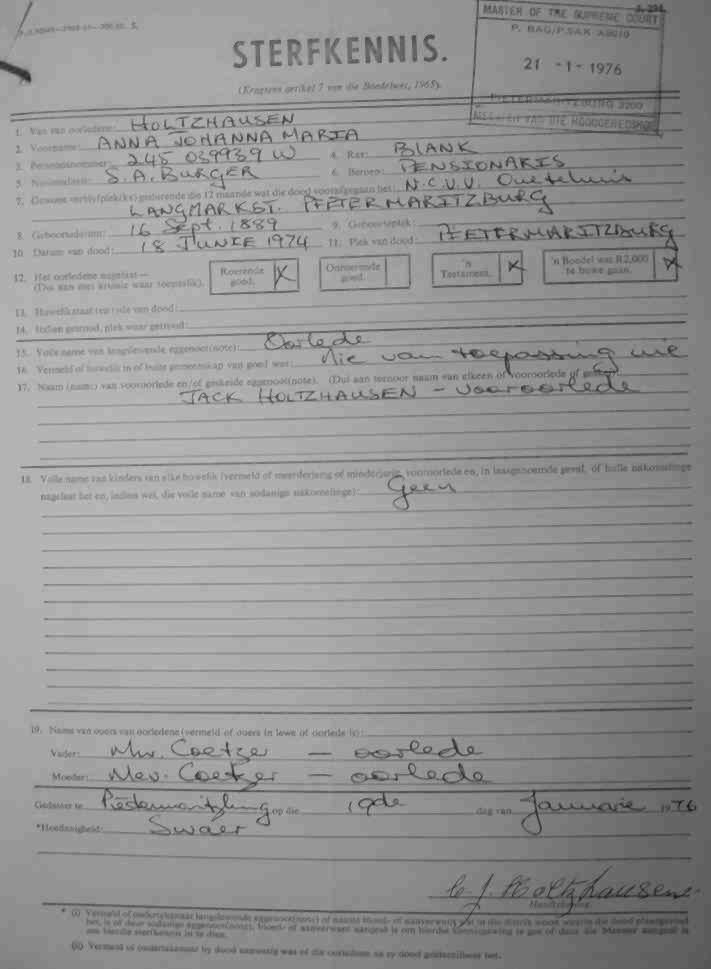 MASTER OF THE SUPREME COURT
P. BAG/P.SAK X9010
21 -1- 1976
PIETERMARITZBURG 3200
MEESTER VAN DIE HOOGGEREGSHOF
STERFKENNIS.
(Kragtens artikel 7 van die Boedelwet, 1965).
1. Van van oorledene: HOLTZHAUSEN
2. Voorname: ANNA JOHANNA MARIA
3. Persoonsnommer: 245 039939 W 4. Ras: BLANK
5. Nasionaliteit: S.A. BURGER 6. Beroep: PENSIONARIS
7. Gewone verblyfplek(ke) gedurende die 12 maande wat die dood voorafgegaan het: N.C.V.V. Ouetehuis
LANGMARKST. PIETERMARITZBURG
8. Geboortedatum: 16 Sept. 1889 9. Geboorteplek:
10. Datum van dood: 18 JUNIE 1974 11. Plek van dood: PIETERMARITZBURG
12. Het oorledene nagelaat—
(Dui aan met kruisie waar toepaslik). Roerende goed. X Onroerende goed. 'n Testament. X 'n Boedel wat R2,000 te bowe gaan. X
13. Huwelikstaat ten tyde van dood:
14. Indien getroud, plek waar getroud:
15. Volle name van langslewende eggenoot(note): Oorlede
16. Vermeld of huwelik in of buite gemeenskap van goed was: Nie van toepassing nie
17. Naam (name) van vooroorlede en/of geskeide eggenoot(note). (Dui aan ternoor naam van elkeen of vooroorlede of geskei):
JACK HOLTZHAUSEN - vooroorlede
18. Volle name van kinders van elke huwelik (vermeld of meerderjarig of minderjarig, vooroorlede en, in laasgenoemde geval, of hulle nakomelinge
nagelaat het en, indien wel, die volle name van sodanige nakomelinge): Geen
19. Name van ouers van oorledene (vermeld of ouers in lewe of oorlede is):
Vader: Mnr. Coetzer — oorlede
Moeder: Mev. Coetzer — oorlede
Gedateer te Pietermaritzburg op die 19de dag van Januarie 1976
*Hoedanigheid: Swaer
C. J. Holtzhausen
Handtekening.
* (i) Vermeld of ondertekenaar langslewende eggenoot(note) of naaste bloed- of aanverwant wat in die distrik woon waarin die dood plaasgevind
(ii) Vermeld of ondertekenaar by dood aanwesig was of die oorledene na sy dood geïdentifiseer het.